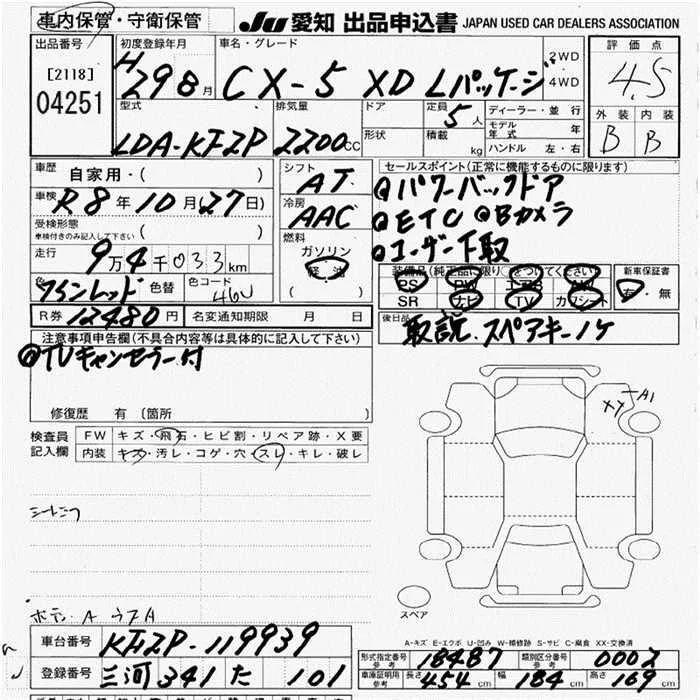 車内保管・守衛保管
JU 愛知 出品申込書 JAPAN USED CAR DEALERS ASSOCIATION
出品番号 初度登録年月 車名・グレード 2WD 4WD 評価点
[2118] 04251 H29 8月 CX-5 XD Lパッケージ 4.5
型式 排気量 ドア 定員 5人 ディーラー・並行 外装 内装
LDA-KF2P 2200cc 形状 積載 kg モデル年式 年 B B
ハンドル 左・右
車歴 自家用・( ) シフト AT セールスポイント(正常に機能するものに限ります)
車検 R8年10月(27日) 冷房 AAC @パワーバックドア
受検形態 車検付きのみ記入して下さい ( ) @ETC @Bカメラ
走行 9万4千033km 燃料 ガソリン 軽油 ( ) @ユーザー下取
色 色替 色コード 46V
装備品(純正品に限り)をつけてください 新車保証書
PS PW エアB AW 有・無
SR ナビ TV カワシート
R券 12480円 名変通知期限 月 日
後日品 取説、スペアキーノケ
注意事項申告欄(不具合内容等は具体的に記入して下さい)
@TVキャンセラー付
修復歴 有 (箇所 )
A1
XY
検査員記入欄 FW キズ・飛石・ヒビ割・リペア跡・X要
内装 キズ・汚レ・コゲ・穴・スレ・キレ・破レ
スペア
A-キズ E-エクボ U-凹み W-補修跡 S-サビ C-腐食 XX-交換済
車台番号 KF2P-119939
型式指定番号 参考 18487 類別区分番号 参考 0002
登録番号 三河 341 た 101
車庫証明用 参考 長さ 454cm 幅 184cm 高さ 169cm